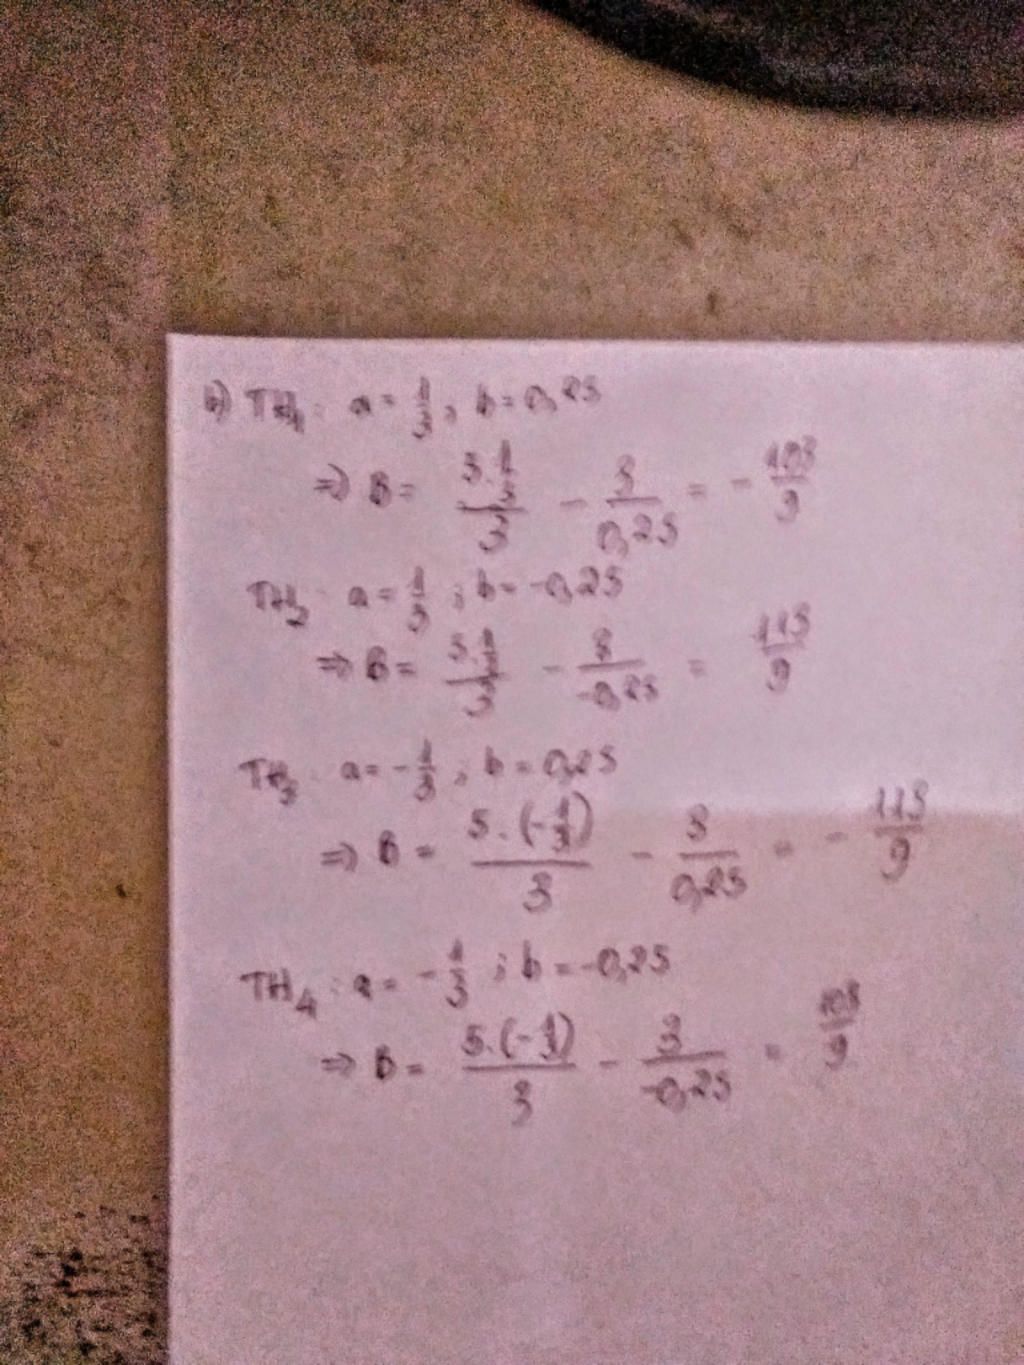 b) TH1: a = 1/3; b = 0,25
=> B = (5.1/3)/3 - 3/0,25 = - 103/9
TH2: a = 1/3; b = -0,25
=> B = (5.1/3)/3 - 3/-0,25 = 113/9
TH3: a = -1/3; b = 0,25
=> B = (5.(-1/3))/3 - 3/0,25 = - 113/9
TH4: a = -1/3; b = -0,25
=> B = (5.(-1/3))/3 - 3/-0,25 = 103/9